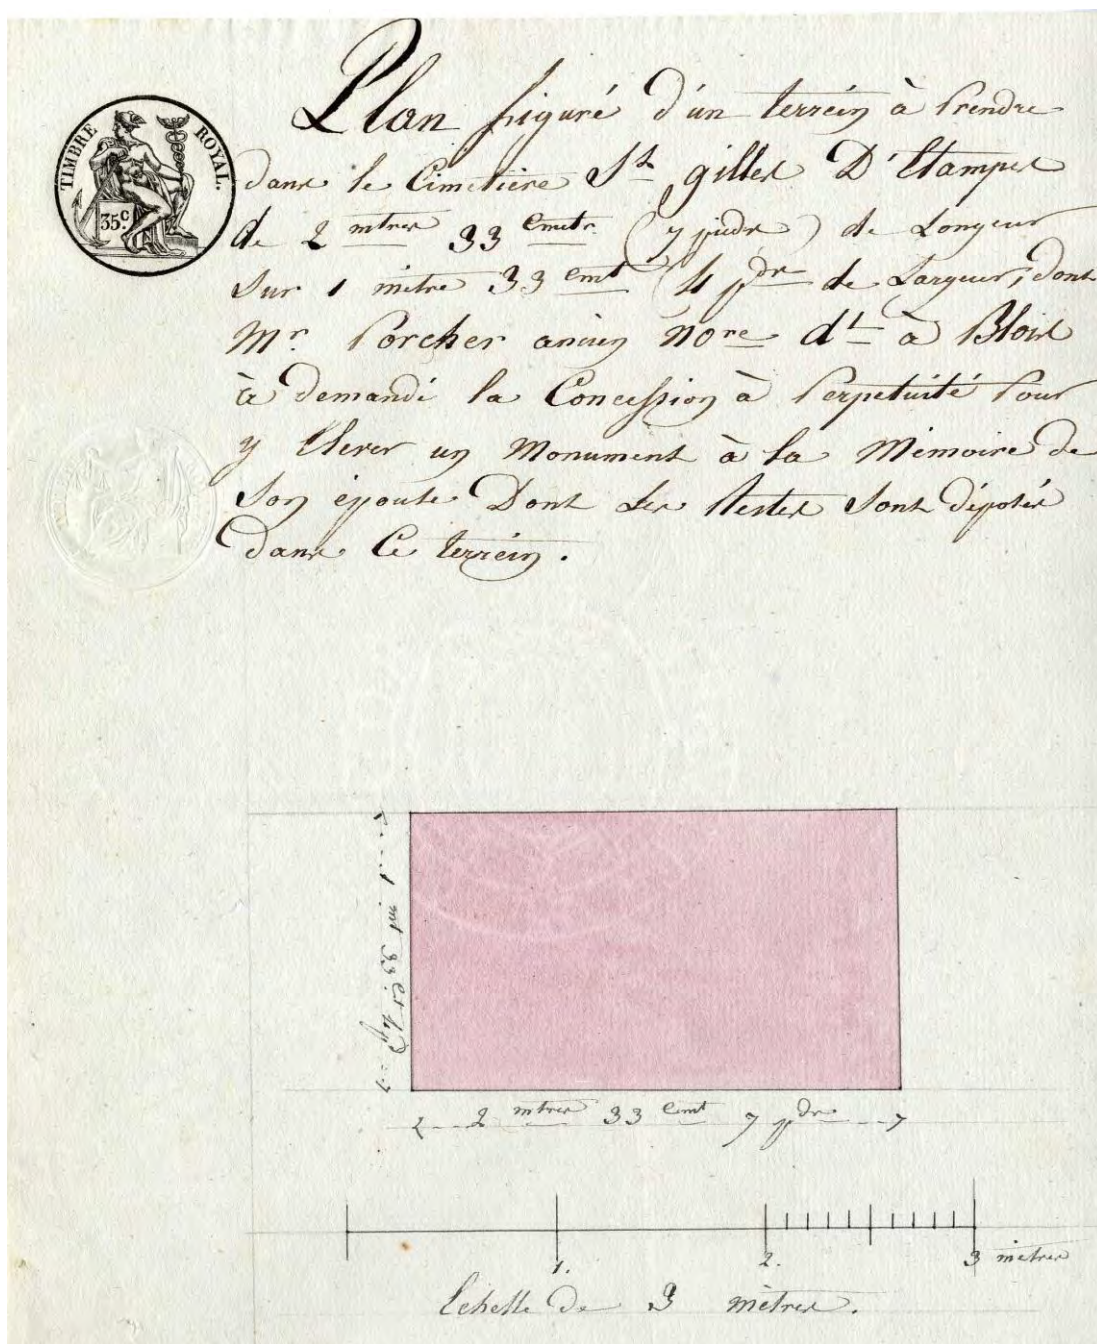 TIMBRE ROYAL.
35.c
Plan figuré d'un terrein à Prendre
dans le Cimetière St gilles D'Etampes
de 2 mtres 33 Cmetr. (7 pieds) de Longeur
sur 1 mètre 33 cmt (4 pds de Largeur, dont
Mr. Porcher ancien Nore dt à Blois
à demandé la Concession à Perpetuité Pour
y Elever un Monument à la Mémoire de
son épouse Dont les Restes sont déposés
dans Ce terrein.
1 mt 33 ct 4 p
2 mtres 33 Cmt 7 pds
1. 2. 3 mètres
Echelle De 3 mètres.